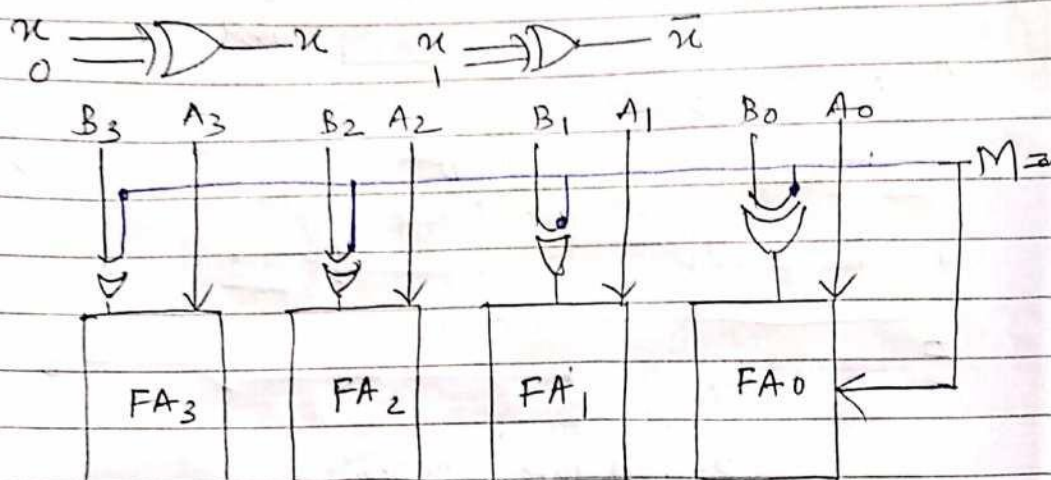 x 0 x x 1 x̄
B3 A3 B2 A2 B1 A1 B0 A0
M=
FA3 FA2 FA1 FA0